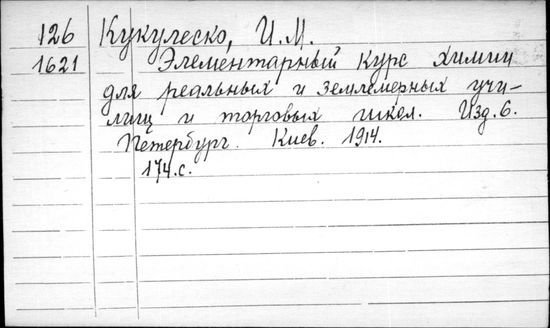 126 Кукулеско, И.М.
1621 Элементарный курс химии
для реальных и землемерных учи-
лищ и торговых школ. Изд. 6.
Петербург. Киев. 1914.
174.с.